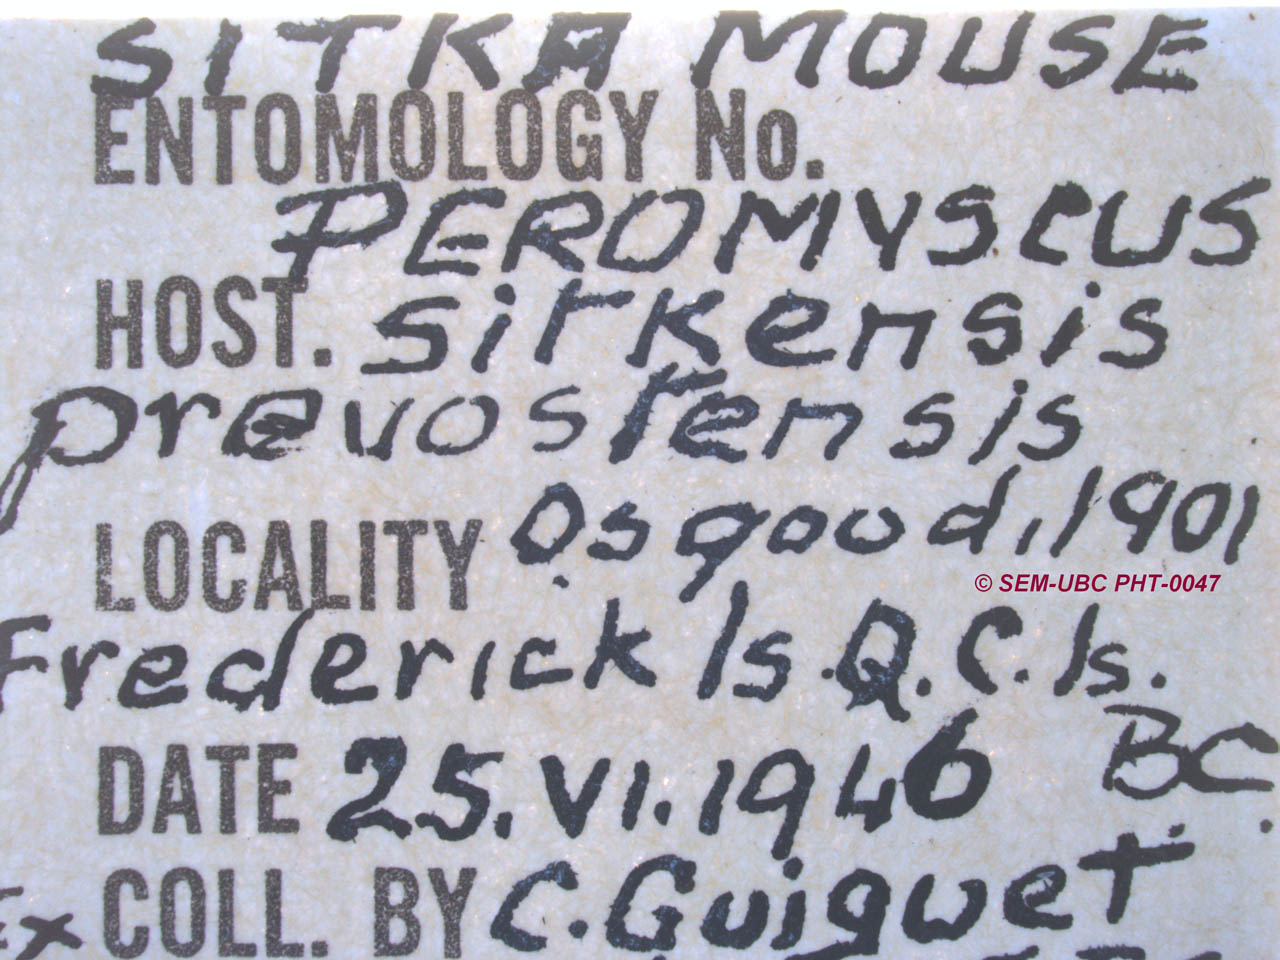 SITKA MOUSE
ENTOMOLOGY No.
PEROMYSCUS
HOST. sitkensis
prevostensis
LOCALITY Osgood, 1901
© SEM-UBC PHT-0047
Frederick Is. Q.C. Is.
BC.
DATE 25.VI.1946
Ex COLL. BY C. Guiguet